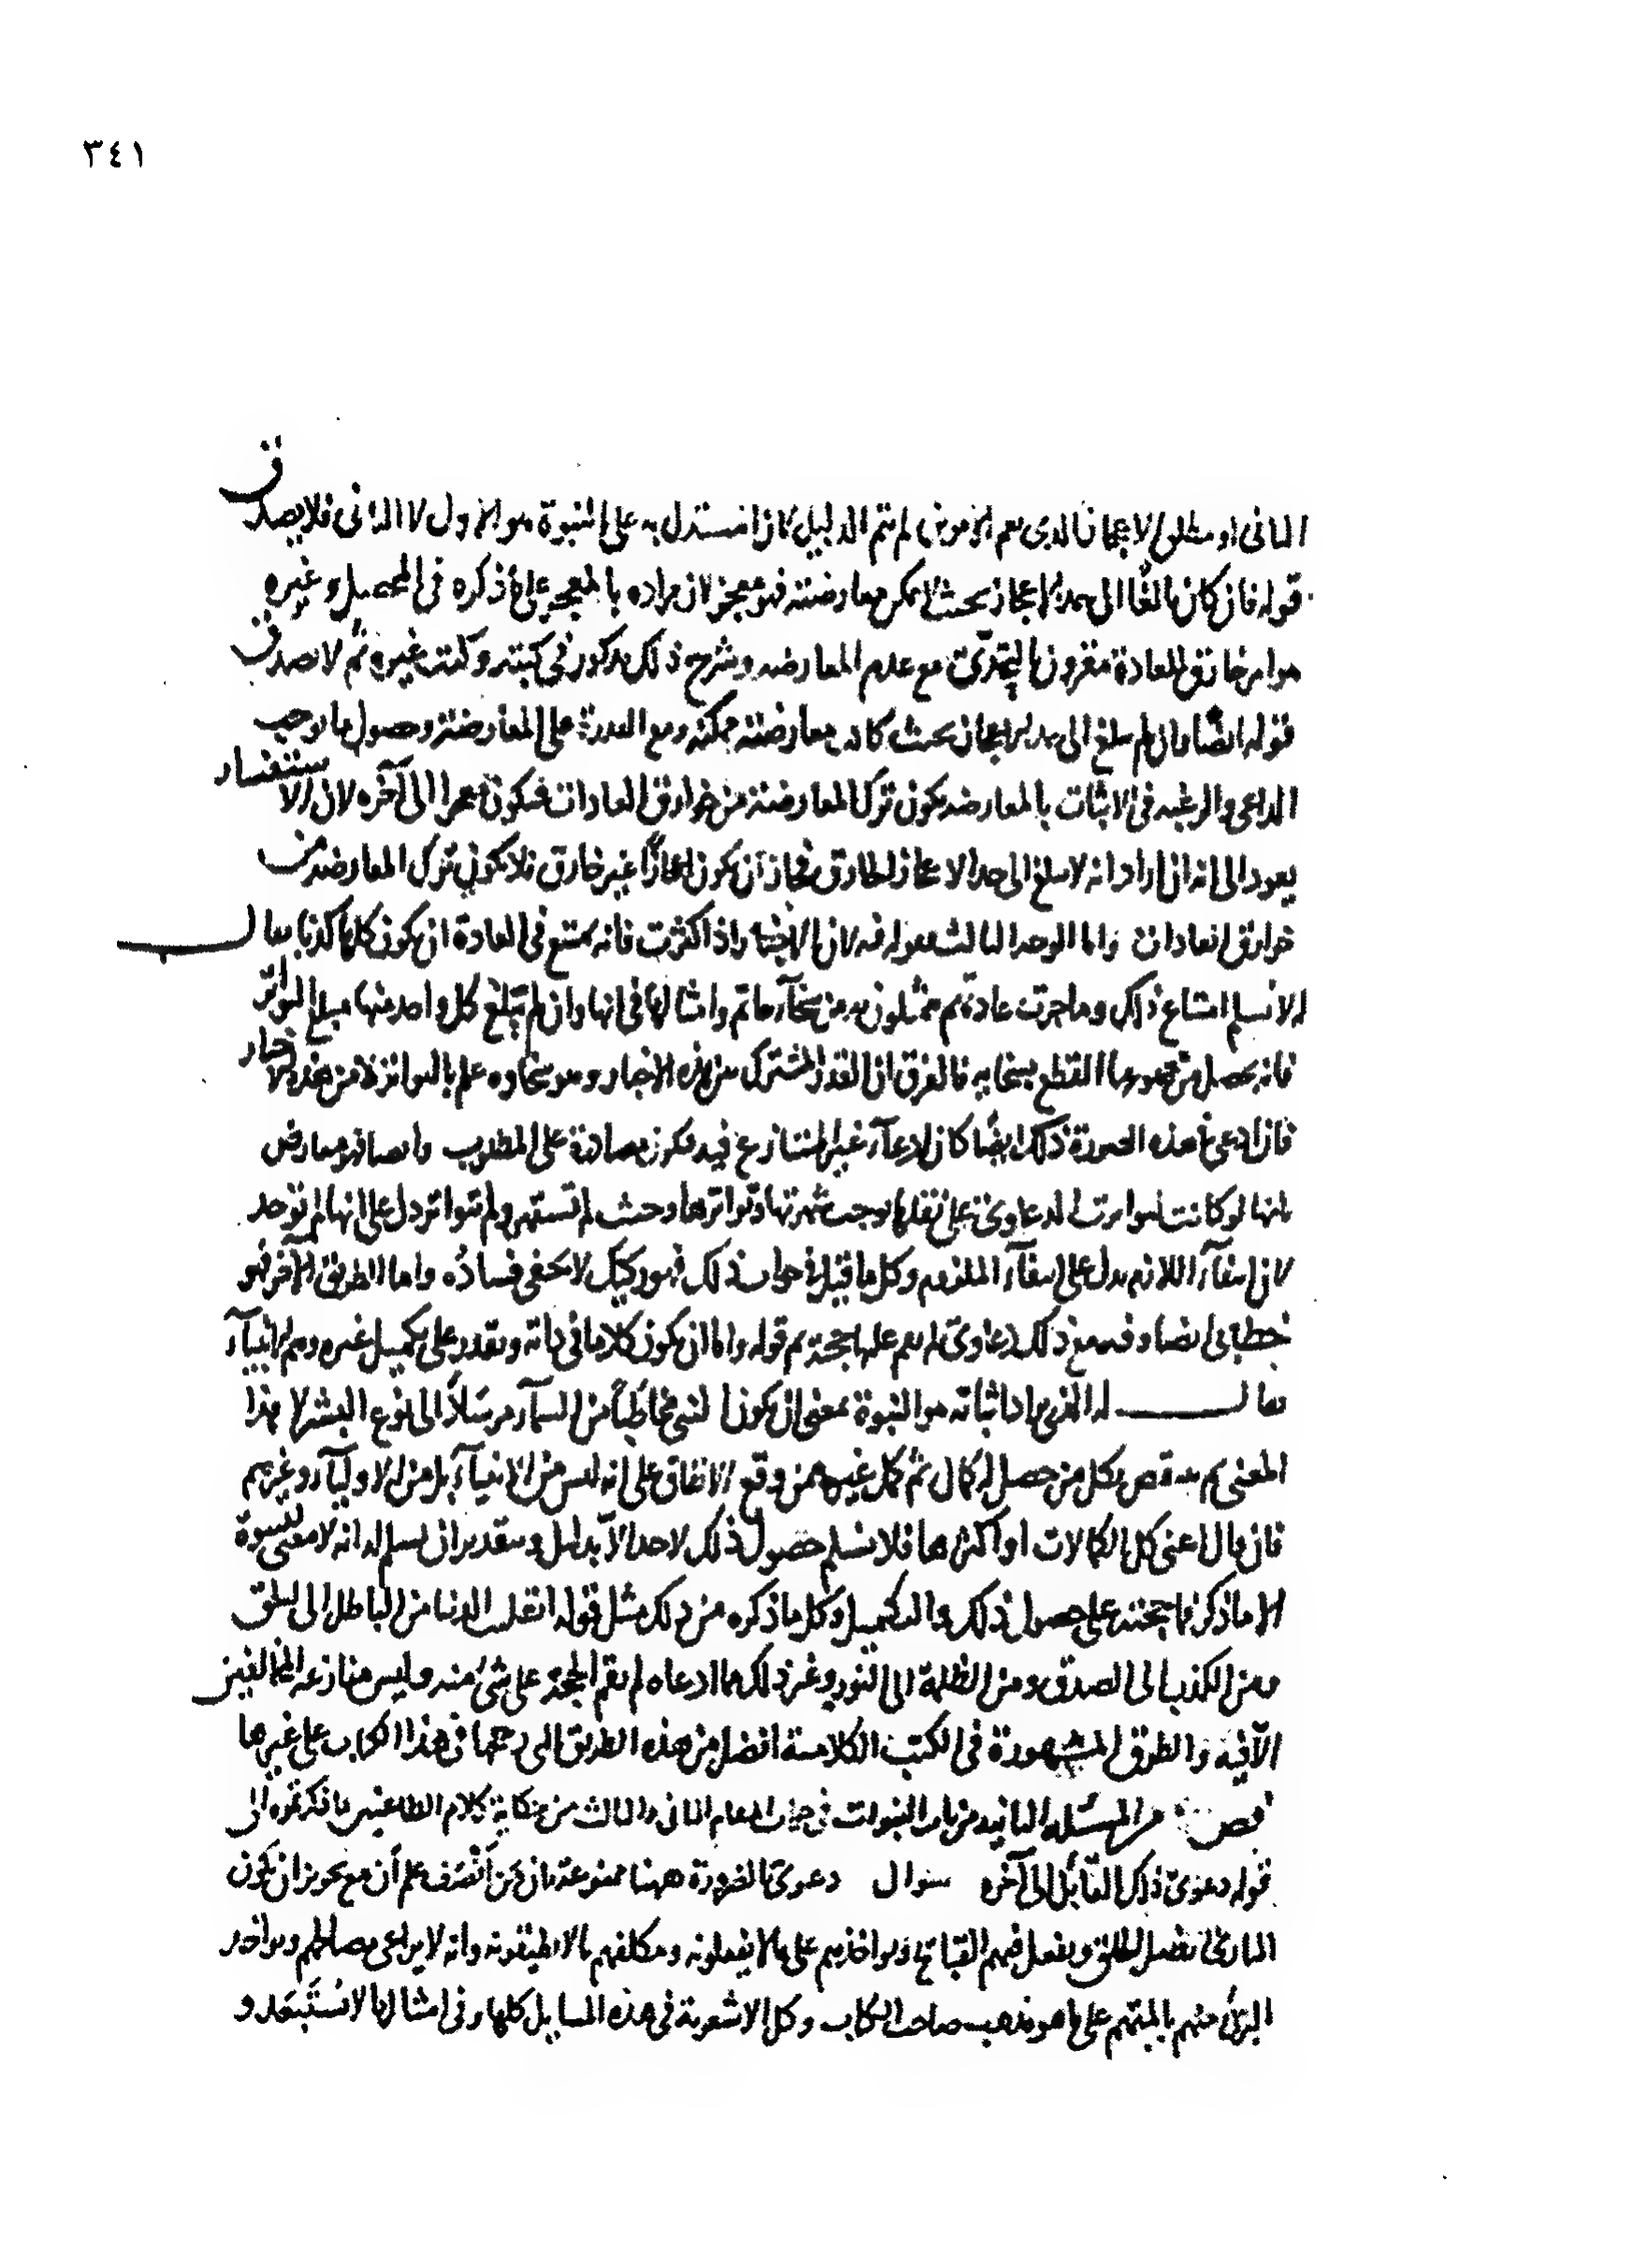 ٣٤١
الثانى او مطلق الاعجاز الذى يعم الامرين لم يتم الدليل كان المستدل به على النبوة هو الاول لا الثانى فلا يصدق
قوله فان كان بالغا الى حد الاعجاز بحيث لا يمكن معارضته فهو معجز لان مراده بالمعجز على ما ذكره فى المحصل وغيره
هو امر خارق للعادة مقرون بالتحدى مع عدم المعارضه وشرح ذلك مذكور فى كتبه وكتب غيره ثم لا يصدق
قوله ايضا وان لم يبلغ الى حد الاعجاز بحيث كانت معارضته ممكنه ومع القدرة على المعارضة وحصول ما يوجب
الداعى والرغبه فى الاثبات بالمعارضه يكون ترك المعارضة من خوارق العادات فيكون معجزا الى آخره لان الاستفسار
يعود الى انه ان اراد انه لا يبلغ الى حد الاعجاز الخارق فجاز ان يكون اعجازا غير خارق فلا يكون ترك المعارضه من
خوارق العادات واما الوجه الثالث فقوله فيه لان الاخبار اذا كثرت فانه يمتنع فى العادة ان يكون كلها كذبا يقال
له لا نسلم امتناع ذلك وما جرت عادتهم يمثلون به من سخآء حاتم وامثالها فى انها وان لم تبلغ كل واحد منها مبلغ التواتر
فانه يحصل من مجموعها القطع بسخايه فالفرق ان القدر المشترك من هذه الاخبار وهو سخاوه علم بالتواتر لا من هذه الاخبار
فان ادعى فى هذه الصورة ذلك ايضا كان الادعآء غير المتنازع فيه فيكون مصادرة على المطلوب وايضا فهو معارض
بانها لو كانت لتواترت الدعاوى على نقلها وجب شهرتها وتواترها وحيث لم تشتهر ولم تتواتر دل على انها لم توجد
لان انتفآء اللازم يدل على انتفآء الملزوم وكل ما قيل فى جواب ذلك فهو ركيك لا يخفى فساده واما الطريق الآخر فهو
خطابى ايضا وفيه مع ذلك دعاوى لم يقم عليها بحجة ثم قوله واما ان يكون كاملا فى ذاته ويقدر على تكميل غيره وهم الانبيآء
يقال له الذى يراد اثباته هو النبوة بمعنى ان يكون النبى مخاطبا من السمآء مرسلا الى نوع البشر لا بهذا
المعنى ثم ينتقض بكل من حصل له كمال ثم كمل غيره ممن وقع الاتفاق على انه ليس من الانبيآء بل من الاوليآء وغيرهم
فان قال اعنى كل الكمالات او اكثرها فلا نسلم حصول ذلك لاحد الا بدليل وبتقدير ان نسلم له انه لا معنى للنبوة
الا ما ذكر فما حجته على حصول ذلك والتكميل وكل ما ذكره من ذلك مثل قوله انقلبت الدنيا من الباطل الى الحق
ومن الكذب الى الصدق ومن الظلمة الى النور وغير ذلك مما ادعاه لم يقم الحجة على شئ منه وليس منازعه المخالفين
الا فيه والطرق المشهورة فى الكتب الكلامية افضل من هذه الطريق التى رجحها فى هذا الكتاب على غيرها
فص من المسئلة الثانيه من باب النبوات فى جواب المقام الثانى والثالث من حكاية كلام الطاعنين ما ذكرتموه الى
قوله دعوى ذلك القائل الى آخره سوال دعوى الضرورة ههنا ممنوعة فان من انصف علم ان مع تجويز ان يكون
البارى تعالى يضل الخلق ويفعل فيهم القبايح ويواخذهم على ما لا يفعلونه ويكلفهم ما لا يطيقونه وانه لا يراعى مصالحهم ويواخذ
البرئ منهم بالمتهم على ما هو مذهب صاحب الكتاب وكل الاشعرية فى هذه المسايل كلها وفى امثالها لا نستبعد و